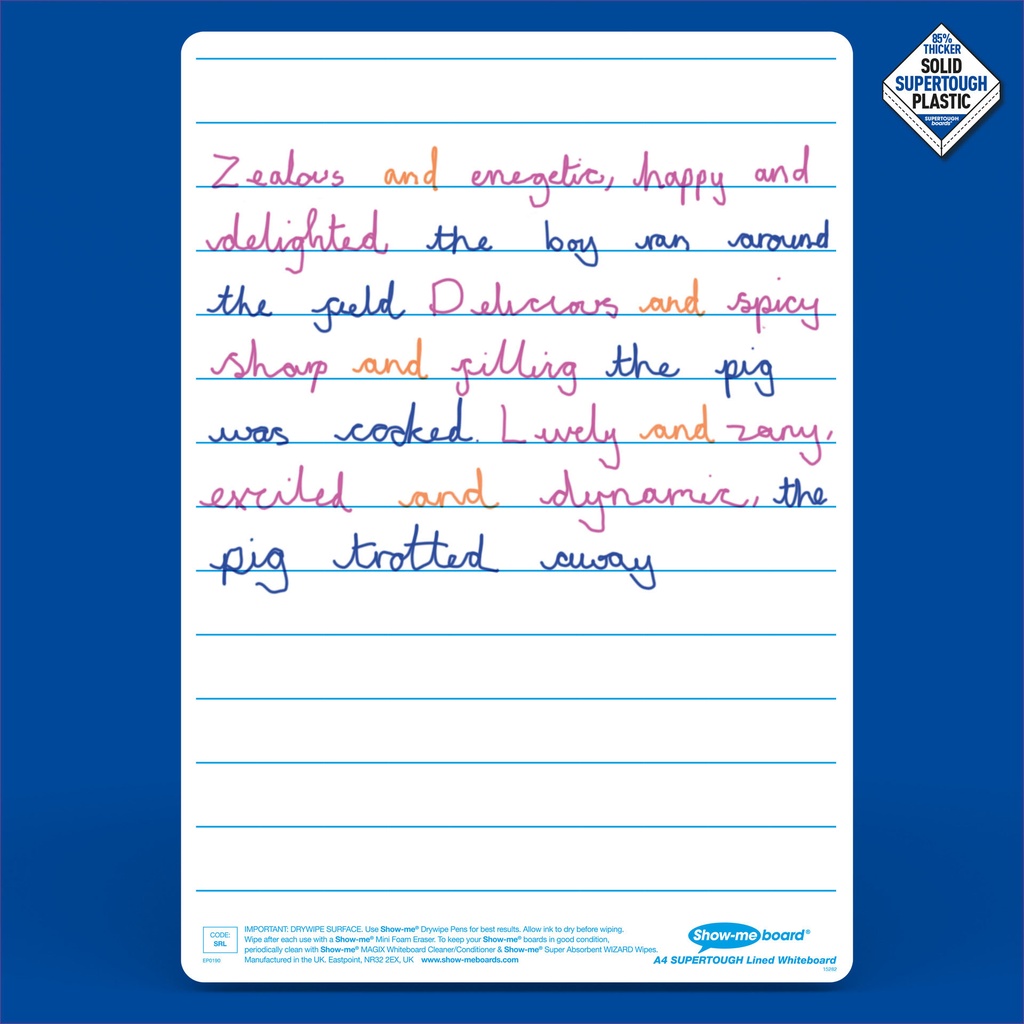 85%
THICKER
SOLID
SUPERTOUGH
PLASTIC
SUPERTOUGH
boards®
Zealous and enegetic, happy and
delighted the boy ran around
the field Delicious and spicy
sharp and filling the pig
was cooked. Lively and zany,
excited and dynamic, the
pig trotted away
CODE:
SRL
EP0190
IMPORTANT: DRYWIPE SURFACE. Use Show-me® Drywipe Pens for best results. Allow ink to dry before wiping.
Wipe after each use with a Show-me® Mini Foam Eraser. To keep your Show-me® boards in good condition,
periodically clean with Show-me® MAGIX Whiteboard Cleaner/Conditioner & Show-me® Super Absorbent WIZARD Wipes.
Manufactured in the UK. Eastpoint, NR32 2EX, UK www.show-meboards.com
Show-me board®
A4 SUPERTOUGH Lined Whiteboard